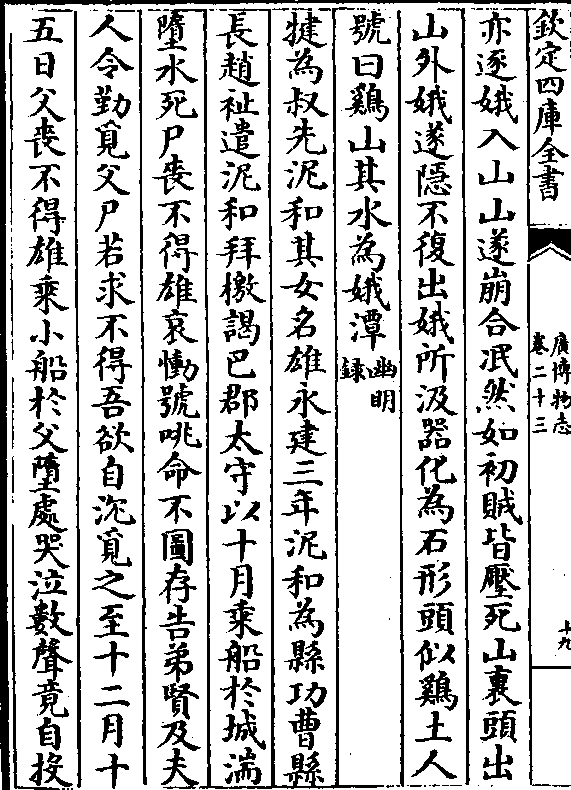 欽定四庫全書
廣博物志
卷二十三
十九
亦逐娥入山山遂崩合泯然如初賊皆壓死山裏頭出
山外娥遂隱不復出娥所汲器化為石形頭似鷄土人
號曰鷄山其水為娥潭幽明録
犍為叔先泥和其女名雄永建三年泥和為縣功曹縣
長趙祉遣泥和拜檄謁巴郡太守以十月乘船於城湍
墮水死尸喪不得雄哀慟號咷命不圖存告弟賢及夫
人令勤覓父尸若求不得吾欲自沉覓之至十二月十
五日父喪不得雄乘小船於父墮處哭泣數聲竟自投